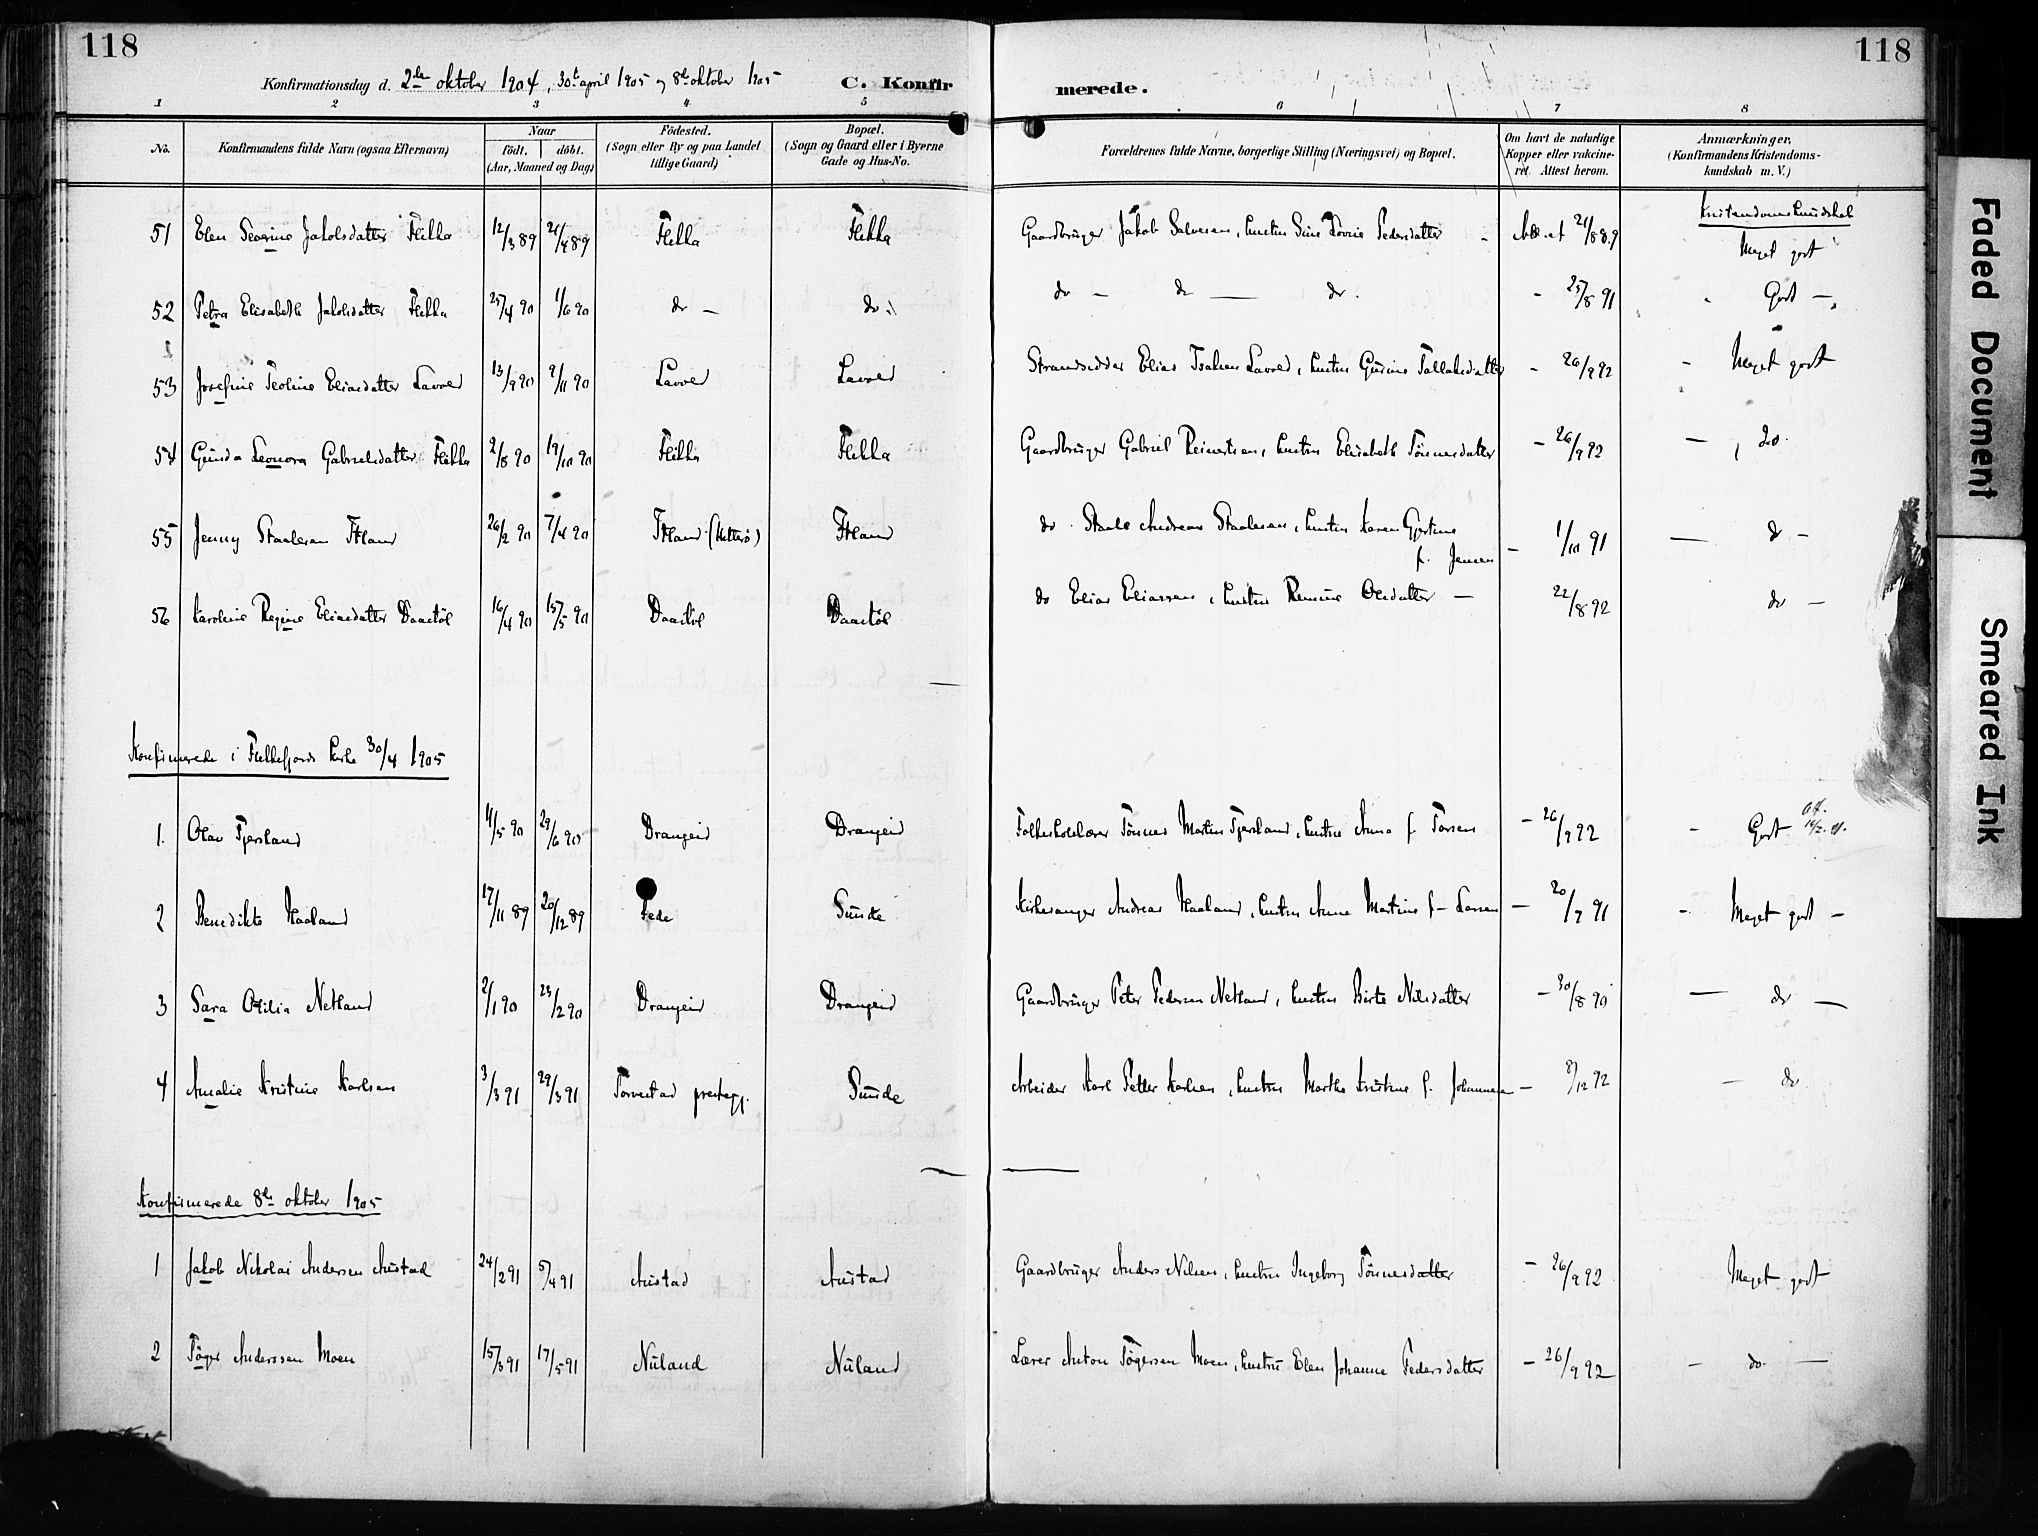 118
118
Konfirmationsdag d. 2de oktober 1904, 30te april 1905 og 8de oktober 1905
C. Konfirmerede.
1 2 3 4 5 6 7 8
No.
Konfirmandens fulde Navn (ogsaa Efternavn)
Naar
født. døbt.
(Aar, Maaned og Dag)
Fødested.
(Sogn eller By og paa Landet
tillige Gaard)
Bopæl.
(Sogn og Gaard eller i Byerne
Gade og Hus-No.
Forældrenes fulde Navne, borgerlige Stilling (Næringsvei) og Bopæl.
Om havt de naturlige
Kopper eller vakcine-
ret. Attest herom.
Anmærkninger,
(Konfirmandens Kristendoms-
kundskab m. V.)
Kristendomskundskab
51 Elen Severine Jakobsdatter Flikka 12/3 89 21/4 89 Flikka Flikka Gaardbruger Jakob Salvesen, hustru Sine Lovise Pedersdatter - Att. af 21/8 89 Meget godt
52 Petra Elisabeth Jakobsdatter Flikka 25/4 90 1/6 90 do - do do - do - do. - 25/8 91 Godt -
53 Josefine Teoline Eliasdatter Lavold 13/9 90 9/11 90 Lavold Lavold Strandsidder Elias Isaksen Lavold, hustru Gurine Tallaksdatter - 26/9 92 - Meget godt
54 Gunda Leonora Gabrielsdatter Flikka 2/8 90 19/10 90 Flikka Flikka Gaardbruger Gabriel Reinertsen, hustru Elisabeth Tønnesdatter - 26/9 92 - do.
55 Jenny Staalesen Itland 26/2 90 7/4 90 Itland (Hitterø) Itland do. Staale Andreas Staalesen, hustru Karen Gjertine
f. Jensen - 1/10 91 - do -
56 Karoline Regine Eliasdatter Daastøl 16/4 90 15/5 90 Daastøl Daastøl do Elias Eliassen, hustru Olesdatter - 22/8 92 do -
Konfirmerede i Flekkefjords kirke 30/4 1905
1. Olav Tjersland 11/5 90 29/6 90 Drangeid Drangeid Folkeskolelærer Tønnes Martin Tjersland, hustru Anna f. - 26/9 92 - Godt
2 Benedikte Haaland 17/11 89 26/12 89 Fede Sunde Kirkesanger Andreas Haaland, hustru Anne Martine f - Larsen - 20/7 91 - Meget godt -
3 Sara Otilia Netland 2/1 90 23/2 90 Drangeid Drangeid Gaardbruger Peter Pedersen Netland, hustru Birte Nilsdatter - 30/8 90 - do -
4 Amalie Kristine Karlsen 3/3 91 29/3 91 Torvestad prestegj. Sunde Arbeider Karl Petter Karlsen, hustru Marthe Kristine f. Johannesen - 8/12 92 - do
Konfirmerede 8de oktober 1905
1 Jakob Nikolai Andersen Austad 24/2 91 5/4 91 Austad Austad Gaardbruger Anders Nilsen, hustru Ingeborg Tønnesdatter - 26/9 92 Meget godt
2 Tøger Anderssen Moen 15/3 91 17/5 91 Nuland Nuland Lærer Anton Tøgersen Moen, hustru Elen Johanne Pedersdatter - 26/9 92 - do. -
Faded Document
Smeared Ink